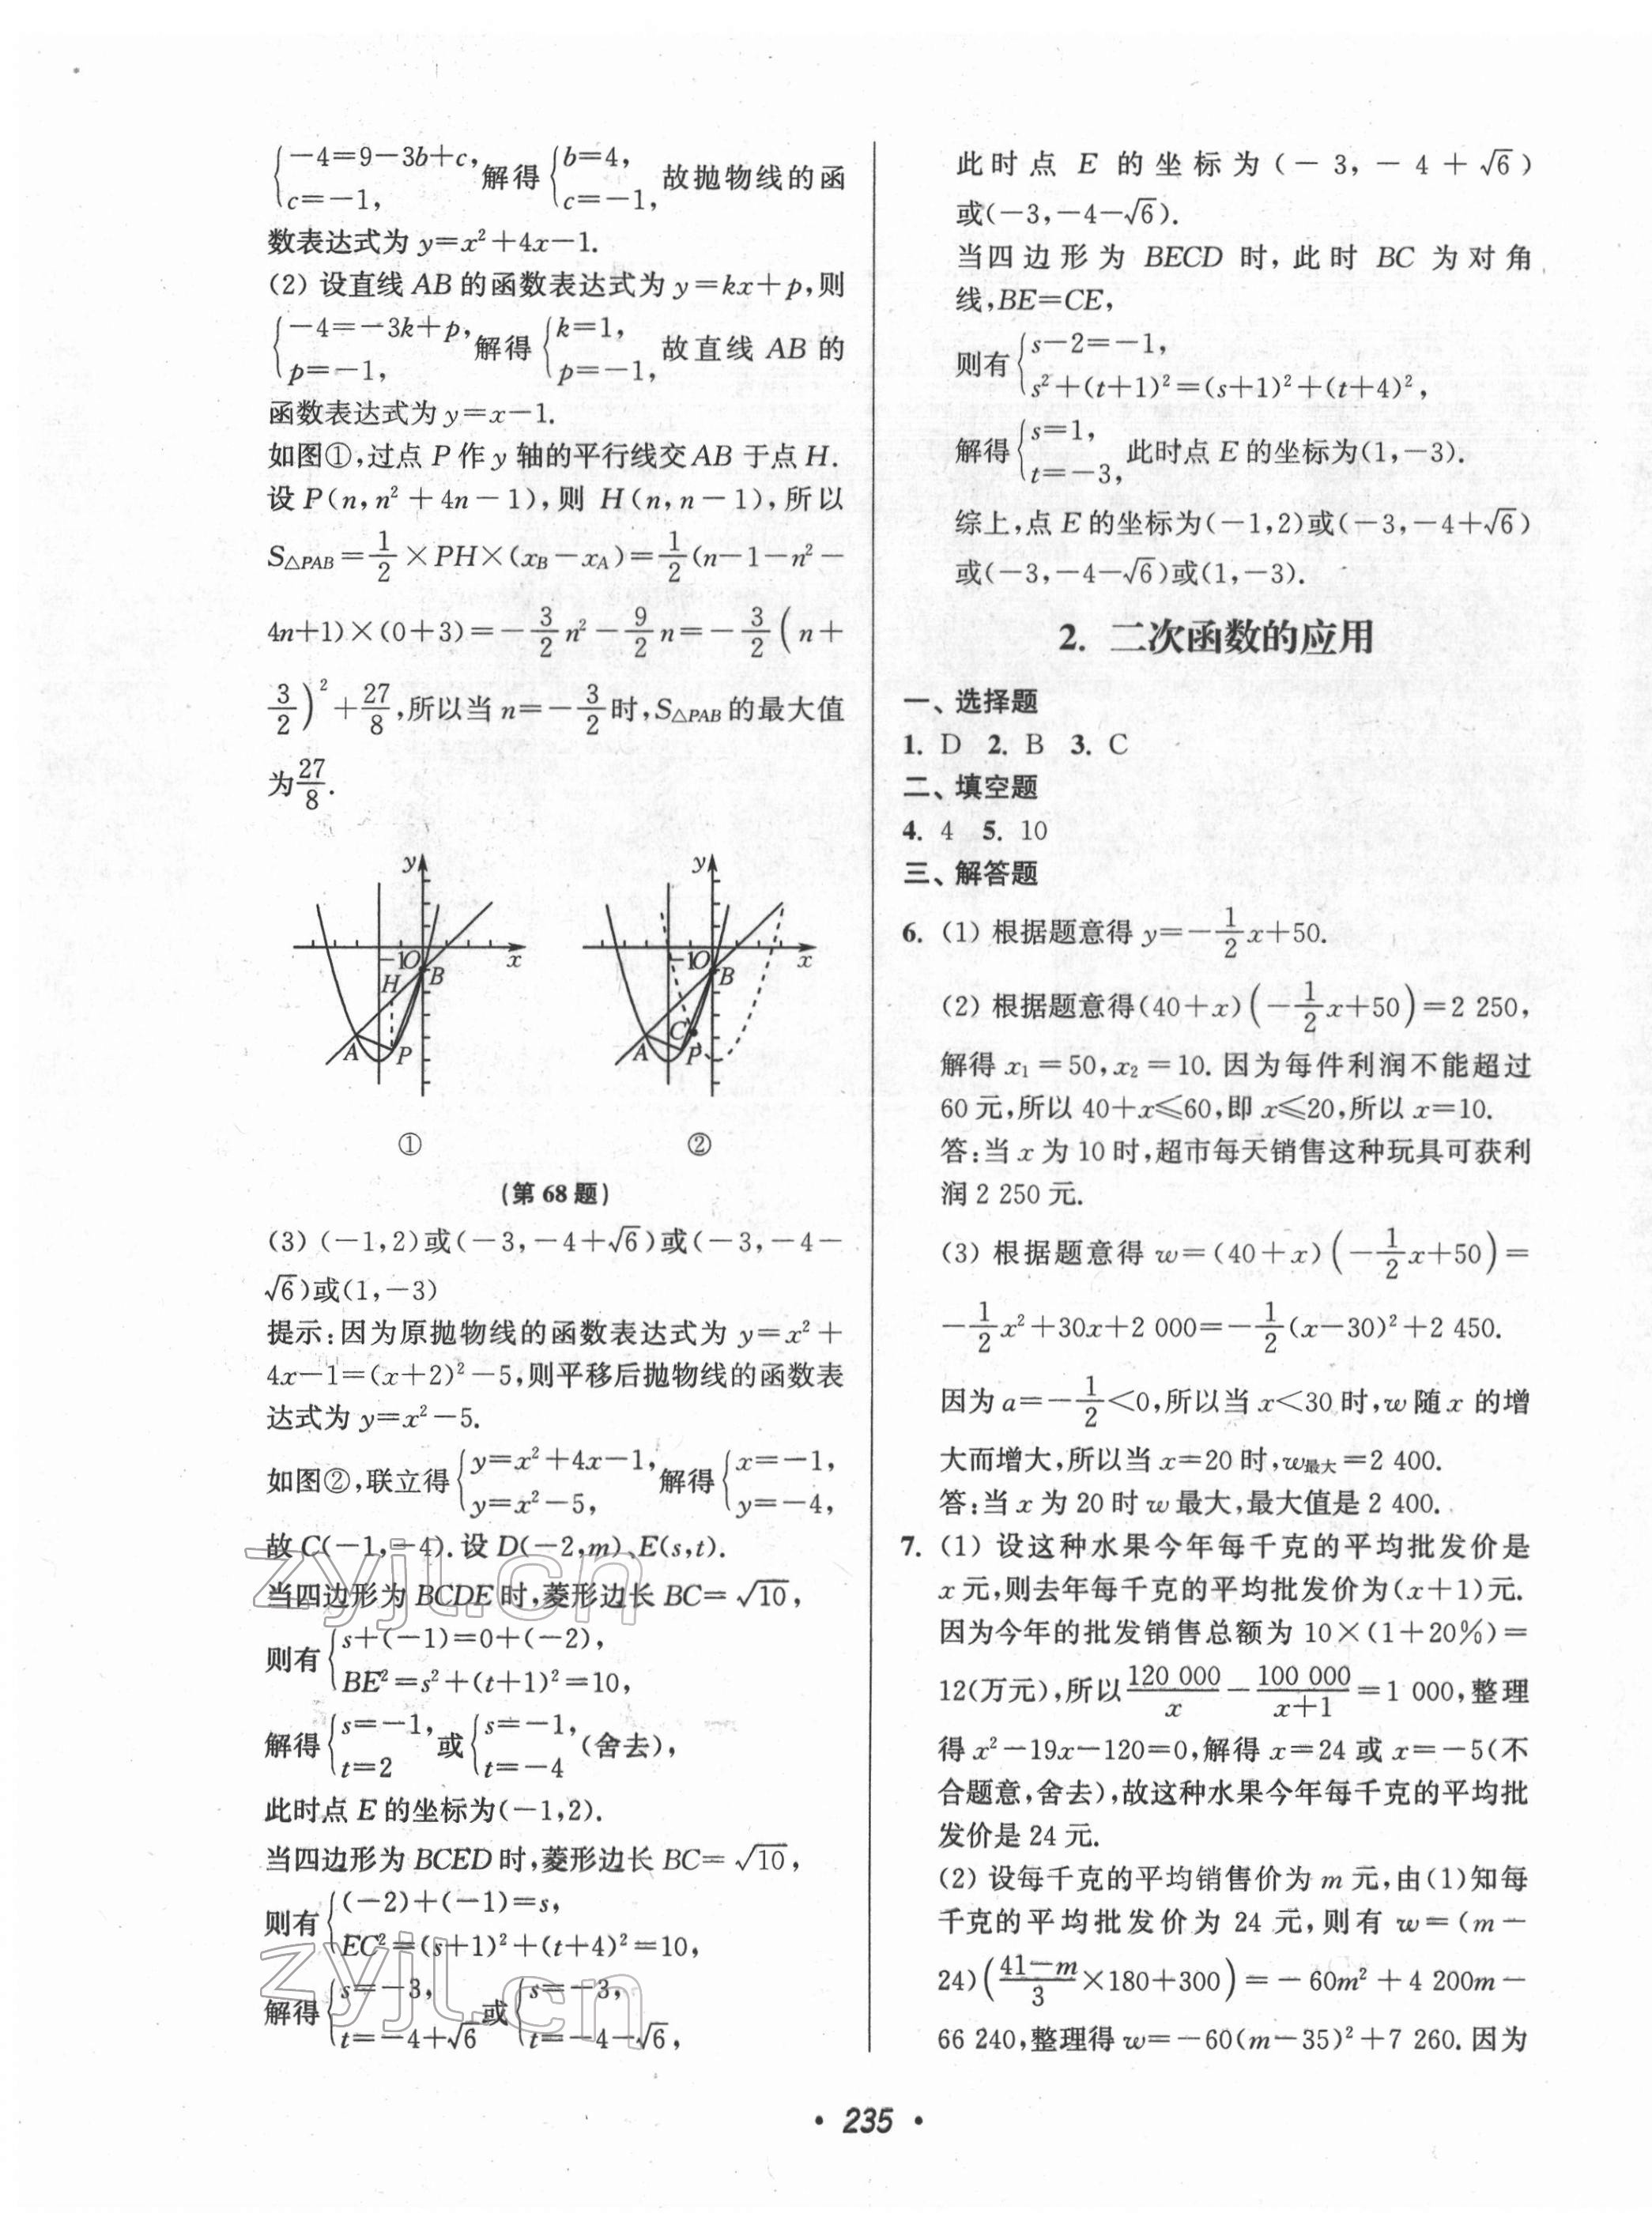 {−4=9−3b+c, c=−1, 解得{b=4, c=−1, 故抛物线的函
数表达式为 y=x²+4x−1.
(2) 设直线 AB 的函数表达式为 y=kx+p,则
{−4=−3k+p, p=−1, 解得{k=1, p=−1, 故直线 AB 的
函数表达式为 y=x−1.
如图①,过点 P 作 y 轴的平行线交 AB 于点 H.
设 P(n,n²+4n−1),则 H(n,n−1),所以
S△PAB=1/2×PH×(xB−xA)=1/2(n−1−n²−
4n+1)×(0+3)=−3/2n²−9/2n=−3/2(n+
3/2)²+27/8,所以当 n=−3/2时,S△PAB的最大值
为27/8.
y
−1O
x
H
B
A
P
①
y
−1O
x
B
C
A
P
②
(第 68 题)
(3) (−1,2)或(−3,−4+√6)或(−3,−4−
√6)或(1,−3)
提示:因为原抛物线的函数表达式为 y=x²+
4x−1=(x+2)²−5,则平移后抛物线的函数表
达式为 y=x²−5.
如图②,联立得{y=x²+4x−1, y=x²−5, 解得{x=−1, y=−4,
故 C(−1,−4).设 D(−2,m)、E(s,t).
当四边形为 BCDE 时,菱形边长 BC=√10,
则有{s+(−1)=0+(−2), BE²=s²+(t+1)²=10,
解得{s=−1, t=2 或{s=−1, t=−4 (舍去),
此时点 E 的坐标为(−1,2).
当四边形为 BCED 时,菱形边长 BC=√10,
则有{(−2)+(−1)=s, EC²=(s+1)²+(t+4)²=10,
解得{s=−3, t=−4+√6 或{s=−3, t=−4−√6,
此时点 E 的坐标为(−3,−4+√6)
或(−3,−4−√6).
当四边形为 BECD 时,此时 BC 为对角
线,BE=CE,
则有{s−2=−1, s²+(t+1)²=(s+1)²+(t+4)²,
解得{s=1, t=−3, 此时点 E 的坐标为(1,−3).
综上,点 E 的坐标为(−1,2)或(−3,−4+√6)
或(−3,−4−√6)或(1,−3).
2. 二次函数的应用
一、选择题
1. D 2. B 3. C
二、填空题
4. 4 5. 10
三、解答题
6. (1) 根据题意得 y=−1/2x+50.
(2) 根据题意得(40+x)(−1/2x+50)=2 250,
解得 x₁=50,x₂=10.因为每件利润不能超过
60 元,所以 40+x≤60,即 x≤20,所以 x=10.
答:当 x 为 10 时,超市每天销售这种玩具可获利
润 2 250 元.
(3) 根据题意得 w=(40+x)(−1/2x+50)=
−1/2x²+30x+2 000=−1/2(x−30)²+2 450.
因为 a=−1/2<0,所以当 x<30 时,w 随 x 的增
大而增大,所以当 x=20 时,w最大=2 400.
答:当 x 为 20 时 w 最大,最大值是 2 400.
7. (1) 设这种水果今年每千克的平均批发价是
x 元,则去年每千克的平均批发价为(x+1)元.
因为今年的批发销售总额为 10×(1+20%)=
12(万元),所以120 000/x−100 000/(x+1)=1 000,整理
得 x²−19x−120=0,解得 x=24 或 x=−5(不
合题意,舍去),故这种水果今年每千克的平均批
发价是 24 元.
(2) 设每千克的平均销售价为 m 元,由(1)知每
千克的平均批发价为 24 元,则有 w=(m−
24)((41−m)/3×180+300)=−60m²+4 200m−
66 240,整理得 w=−60(m−35)²+7 260.因为
· 235 ·
zyjl.cn
zyjl.cn